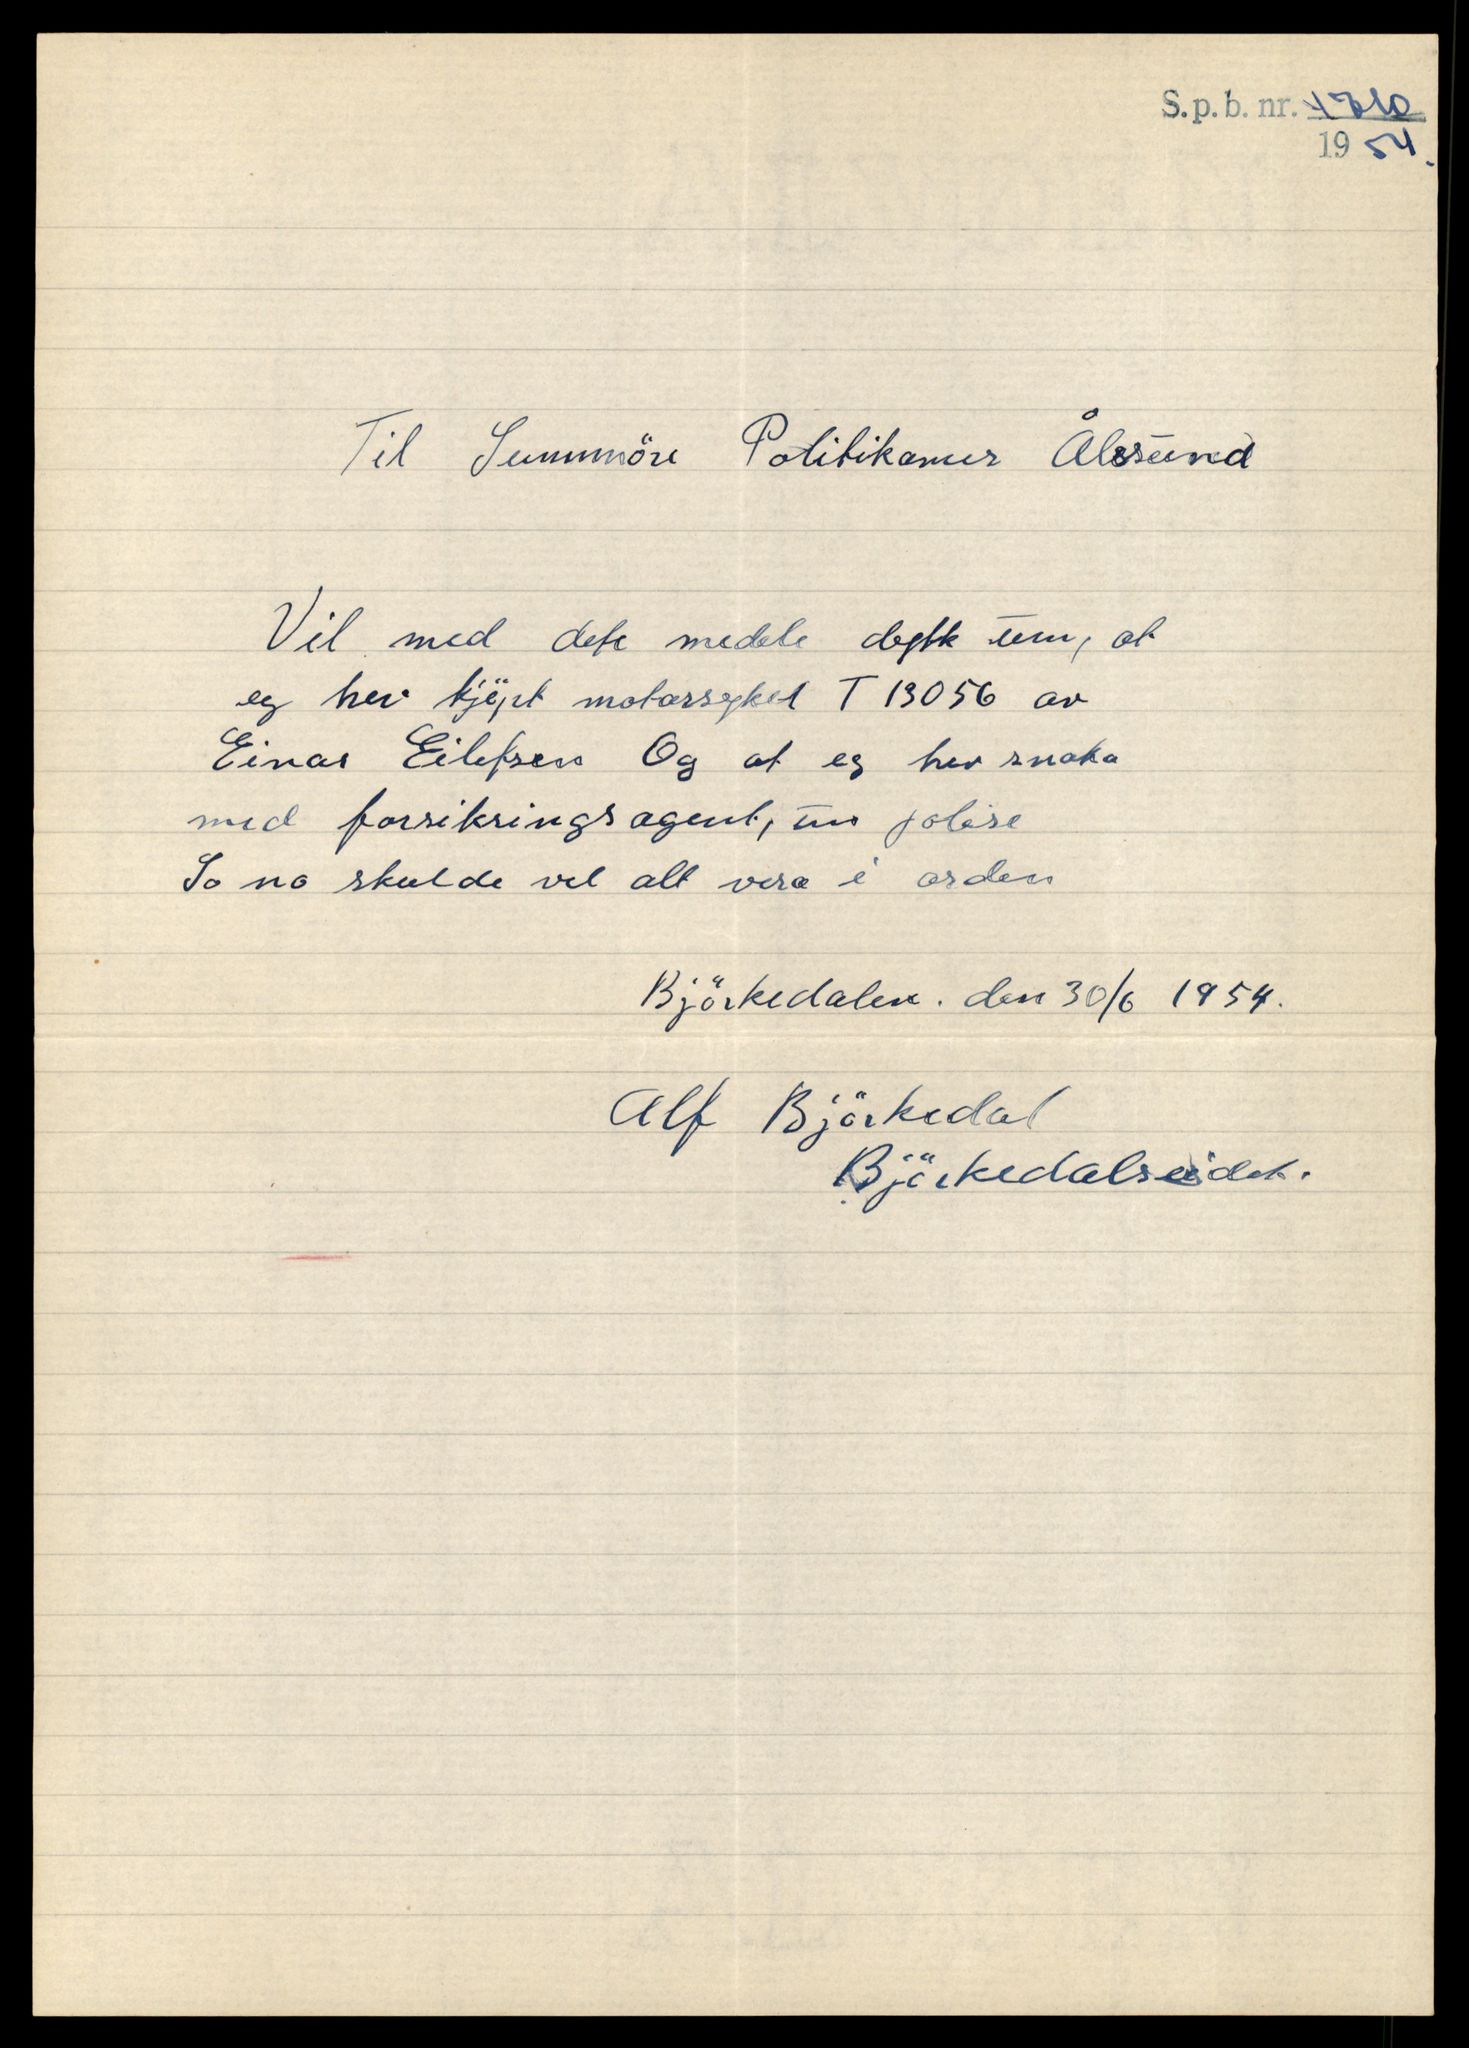 S.p.b. nr.
1954.
Til Sunnmöre Politikamer Ålesund
Vil med dete medele dykk um, at
eg hev kjöpt motorsykel T 13056 av
Einar Eilefsen Og at eg hev snaka
med forsikringsagent, um polise
So no skulde vel alt vera i orden
Björkedalen. den 30/6 1954.
Alf Björkedal
Björkedalseidet.